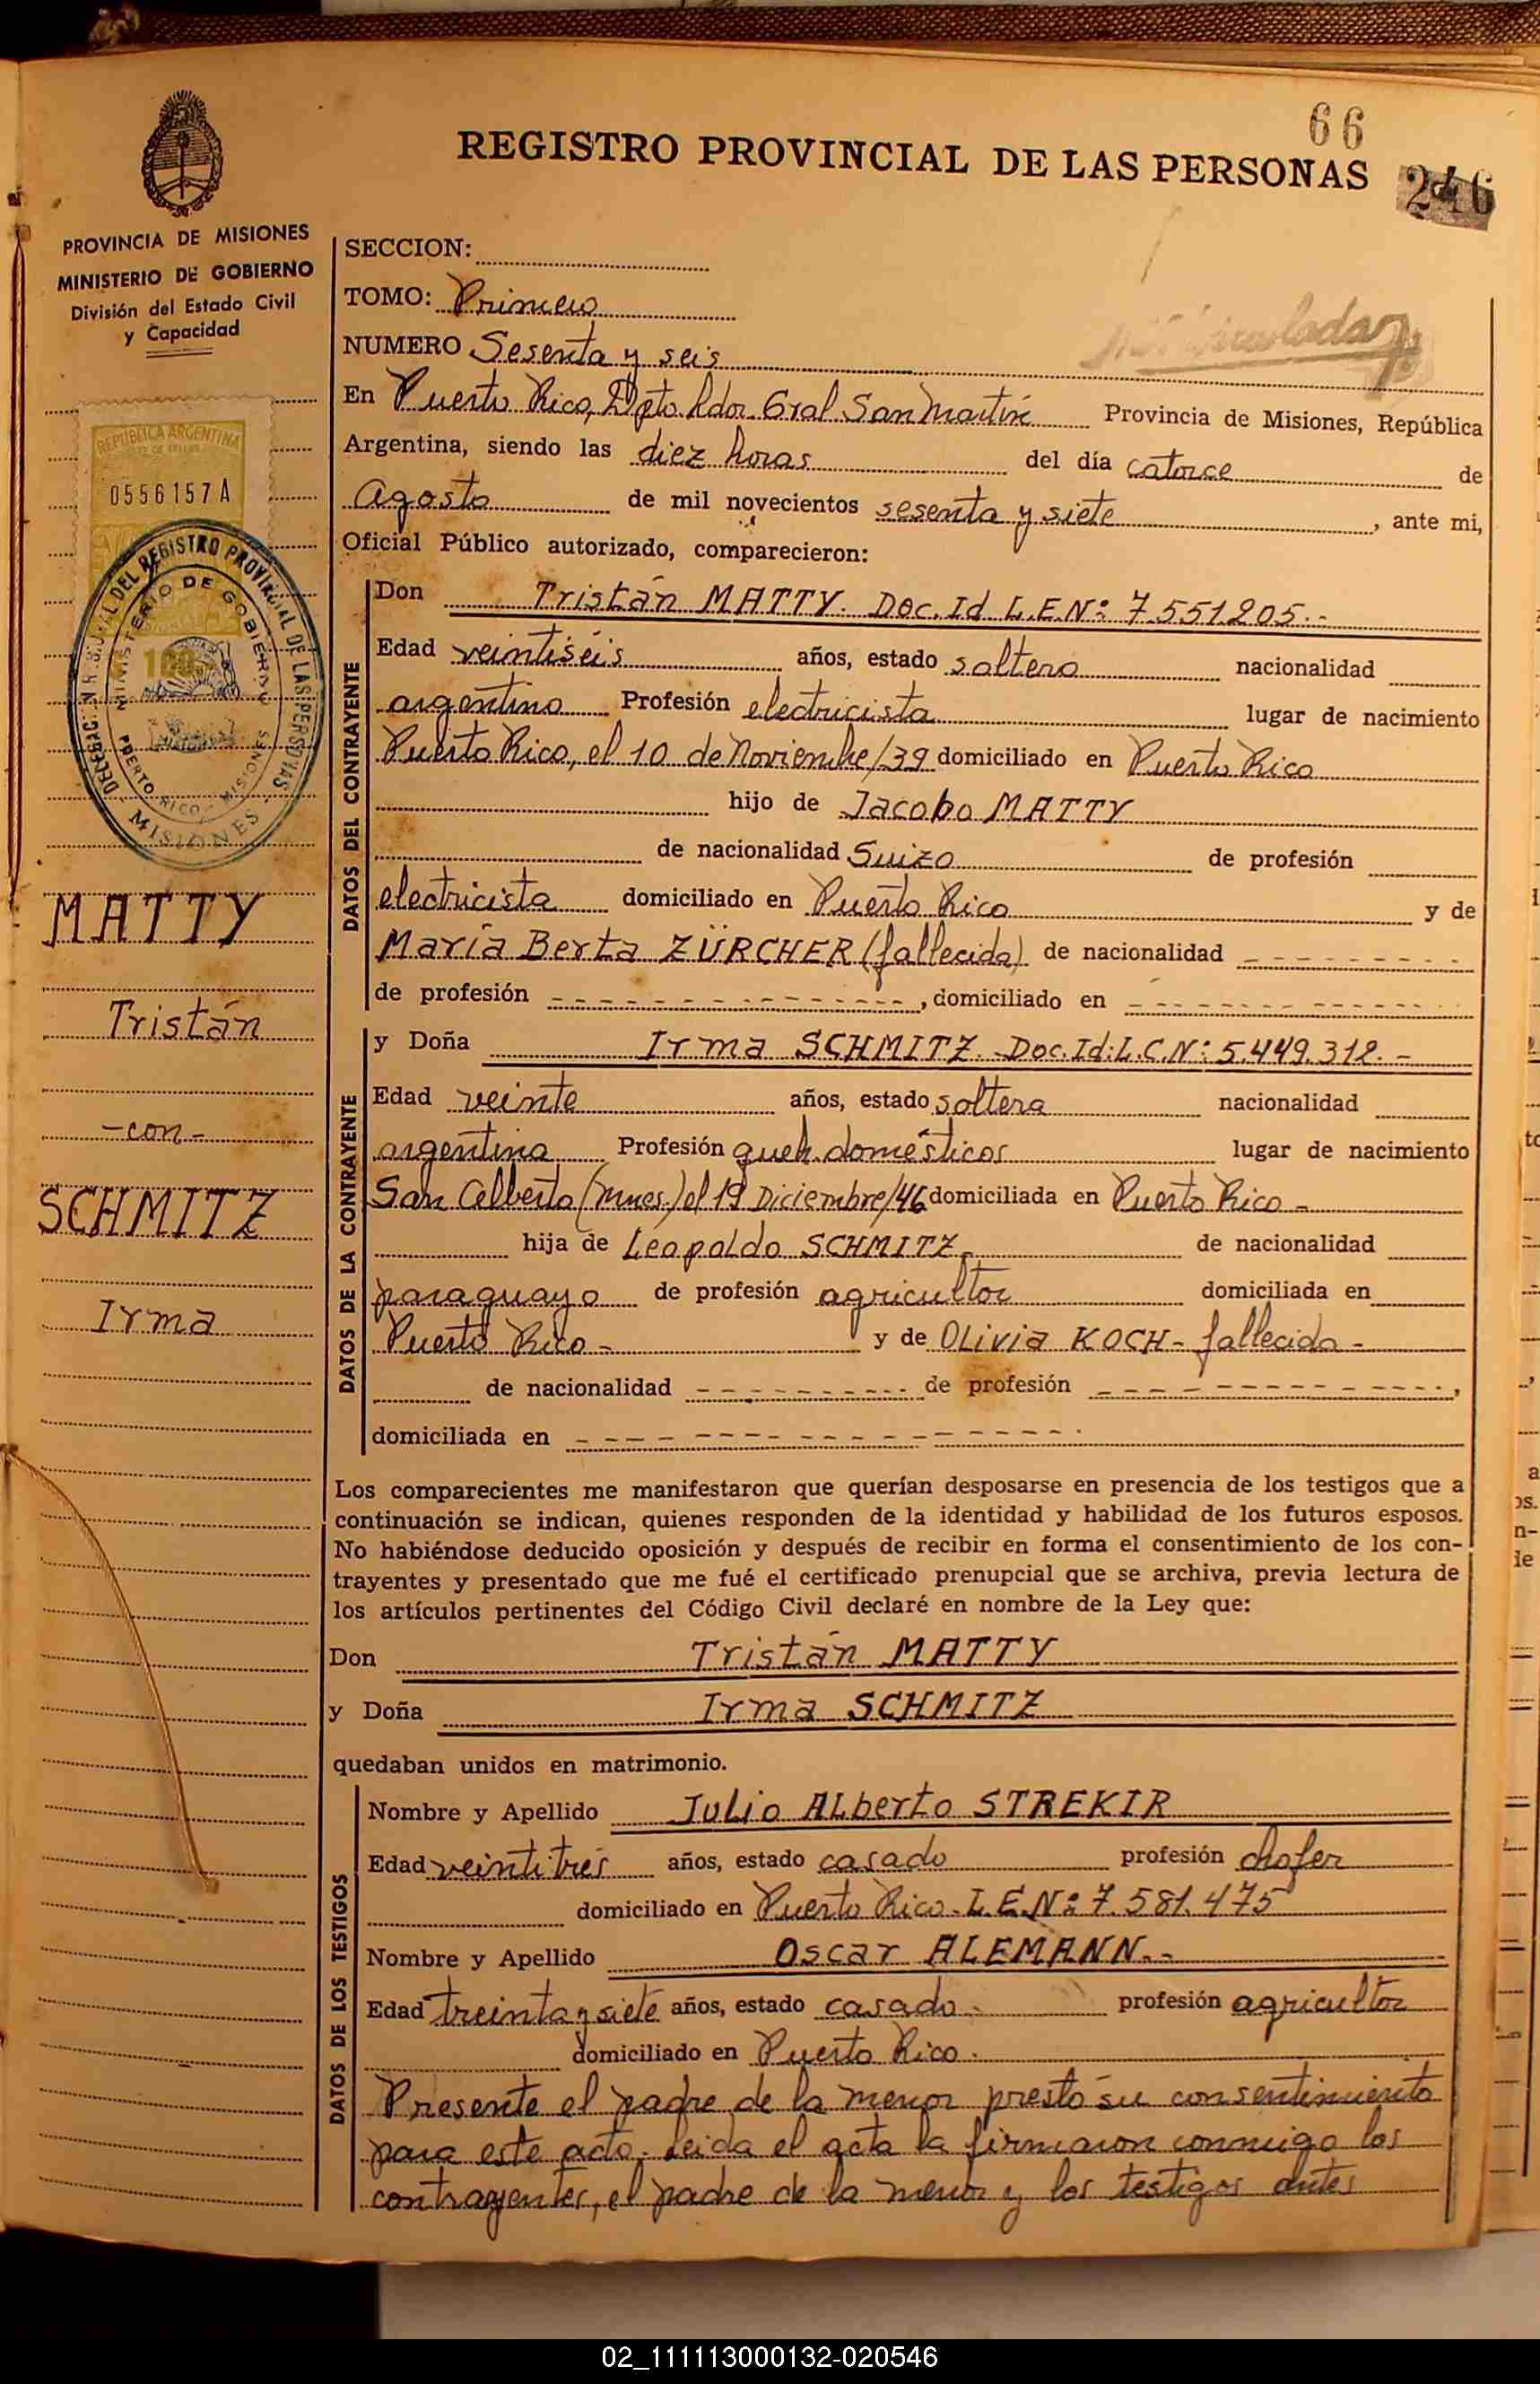 66
REGISTRO PROVINCIAL DE LAS PERSONAS
246
PROVINCIA DE MISIONES
MINISTERIO DE GOBIERNO
División del Estado Civil
y Capacidad
SECCION:
TOMO: Primero
NUMERO Sesenta y seis
En Puerto Rico, Dpto. Ldor. Gral San Martín Provincia de Misiones, República
Argentina, siendo las diez horas del día catorce de
Agosto de mil novecientos sesenta y siete, ante mi,
Oficial Público autorizado, comparecieron:
REPUBLICA ARGENTINA
0556157 A
100
DEL REGISTRO PROVINCIAL DE LAS PERSONAS
MINISTERIO DE GOBIERNO
PUERTO RICO - MISIONES
- MISIONES -
MATTY
Tristán
-con-
SCHMITZ
Irma
DATOS DEL CONTRAYENTE
Don Tristán MATTY. Doc. Id L.E.Nº: 7.551.205.-
Edad veintiséis años, estado soltero nacionalidad
argentino Profesión electricista lugar de nacimiento
Puerto Rico, el 10 de Noviembre/39 domiciliado en Puerto Rico
hijo de Jacobo MATTY
de nacionalidad Suizo de profesión
electricista domiciliado en Puerto Rico y de
María Berta ZÜRCHER (fallecida) de nacionalidad - - - - - - - -
de profesión - - - - - - - - - - - -, domiciliado en - - - - - - - - - - -
DATOS DE LA CONTRAYENTE
y Doña Irma SCHMITZ. Doc. Id: L.C.Nº: 5.449.312.-
Edad veinte años, estado soltera nacionalidad
argentina Profesión queh. domésticos lugar de nacimiento
San Alberto (Mnes.) el 19 Diciembre/46 domiciliada en Puerto Rico -
hija de Leopoldo SCHMITZ, de nacionalidad
paraguayo de profesión agricultor domiciliada en
Puerto Rico - y de Olivia KOCH - fallecida -
de nacionalidad - - - - - - - - de profesión - - - - - - - - - - -,
domiciliada en - - - - - - - - - - - - - - - -
Los comparecientes me manifestaron que querían desposarse en presencia de los testigos que a
continuación se indican, quienes responden de la identidad y habilidad de los futuros esposos.
No habiéndose deducido oposición y después de recibir en forma el consentimiento de los con-
trayentes y presentado que me fué el certificado prenupcial que se archiva, previa lectura de
los artículos pertinentes del Código Civil declaré en nombre de la Ley que:
Don Tristán MATTY
y Doña Irma SCHMITZ
quedaban unidos en matrimonio.
DATOS DE LOS TESTIGOS
Nombre y Apellido Julio Alberto STREKIR
Edad veintitrés años, estado casado profesión chofer
domiciliado en Puerto Rico. L.E.Nº: 7.581.475
Nombre y Apellido Oscar ALEMANN.-
Edad treinta y siete años, estado casado. profesión agricultor
domiciliado en Puerto Rico.
Presente el padre de la menor prestó su consentimiento
para este acto. Leida el acta la firmaron conmigo los
contrayentes, el padre de la menor y los testigos antes
02_111113000132-020546